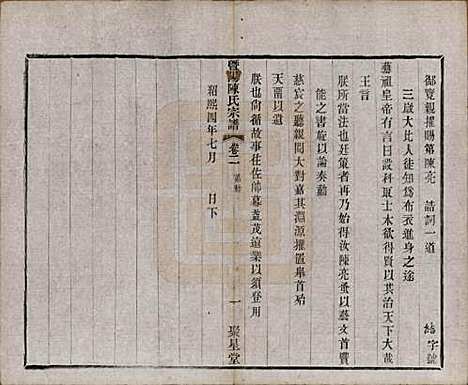 御覽親擢賜第陳亮 誥詞一道
三歲大比人徒知為布衣進身之途
藝祖皇帝有言曰設科取士本欲得賢以其治天下大哉
王言
朕所當法也廷策者再乃始得汝陳亮蚤以藝文首賢
能之書旋以論奏動
慈宸之聽親閱大對嘉其淵源擢置舉首殆
天畱以遺
朕也尚循故事往佐帥幕蓋茂遠業以須登用
紹熙四年七月 日下
暨陽陳氏宗譜 卷二
一 聚星堂